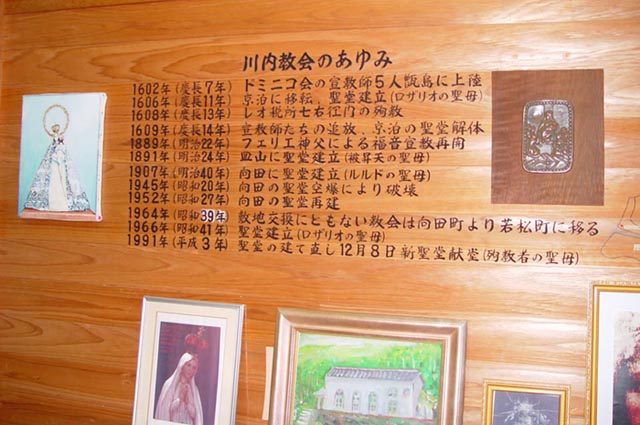 川内教会のあゆみ
1602年(慶長7年) ドミニコ会の宣教師5人甑島に上陸
1606年(慶長11年) 京泊に移転、聖堂建立(ロザリオの聖母)
1608年(慶長13年) レオ税所七右衛門の殉教
1609年(慶長14年) 宣教師たちの追放、京泊の聖堂解体
1889年(明治22年) フェリエ神父による福音宣教再開
1891年(明治24年) 皿山に聖堂建立(被昇天の聖母)
1907年(明治40年) 向田に聖堂建立(ルルドの聖母)
1945年(昭和20年) 向田の聖堂空爆により破壊
1952年(昭和27年) 向田の聖堂再建
1964年(昭和39年) 敷地交換にともない教会は向田町より若松町に移る
1966年(昭和41年) 聖堂建立(ロザリオの聖母)
1991年(平成3年) 聖堂の建て直し12月8日新聖堂献堂(殉教者の聖母)